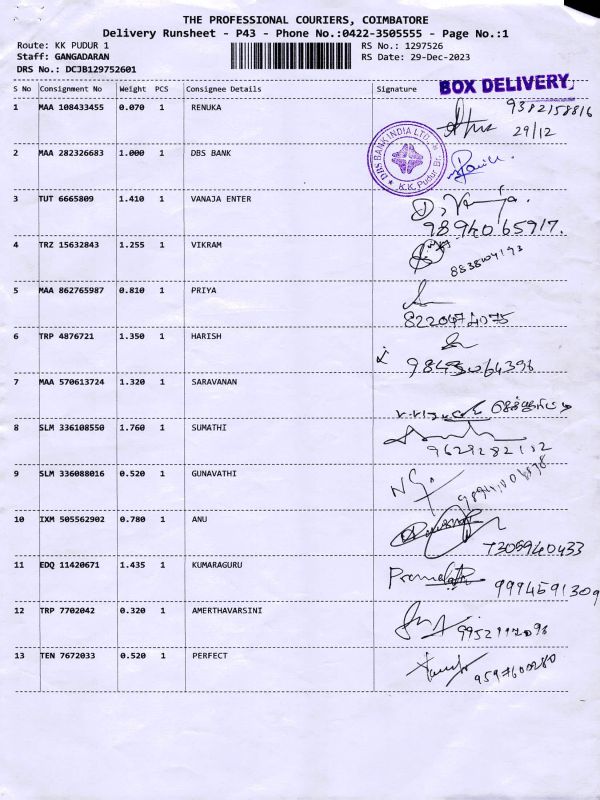 THE PROFESSIONAL COURIERS, COIMBATORE
Delivery Runsheet - P43 - Phone No.:0422-3505555 - Page No.:1
Route: KK PUDUR 1 RS No.: 1297526
Staff: GANGADARAN RS Date: 29-Dec-2023
DRS No.: DCJB129752601
BOX DELIVERY
S No Consignment No Weight PCS Consignee Details Signature
1 MAA 108433455 0.070 1 RENUKA 9382158816
29/12
DBS BANK INDIA LTD. K.K. Pudur Br.
2 MAA 282326683 1.000 1 DBS BANK
3 TUT 6665809 1.410 1 VANAJA ENTER
9894065917.
4 TRZ 15632843 1.255 1 VIKRAM
5 MAA 862765987 0.810 1 PRIYA
6 TRP 4876721 1.350 1 HARISH
7 MAA 570613724 1.320 1 SARAVANAN
8 SLM 336108550 1.760 1 SUMATHI
9629282112
9 SLM 336088016 0.520 1 GUNAVATHI
10 IXM 505562902 0.780 1 ANU
7305940433
11 EDQ 11420671 1.435 1 KUMARAGURU
9994591309
12 TRP 7702042 0.320 1 AMERTHAVARSINI
13 TEN 7672033 0.520 1 PERFECT
9597600280